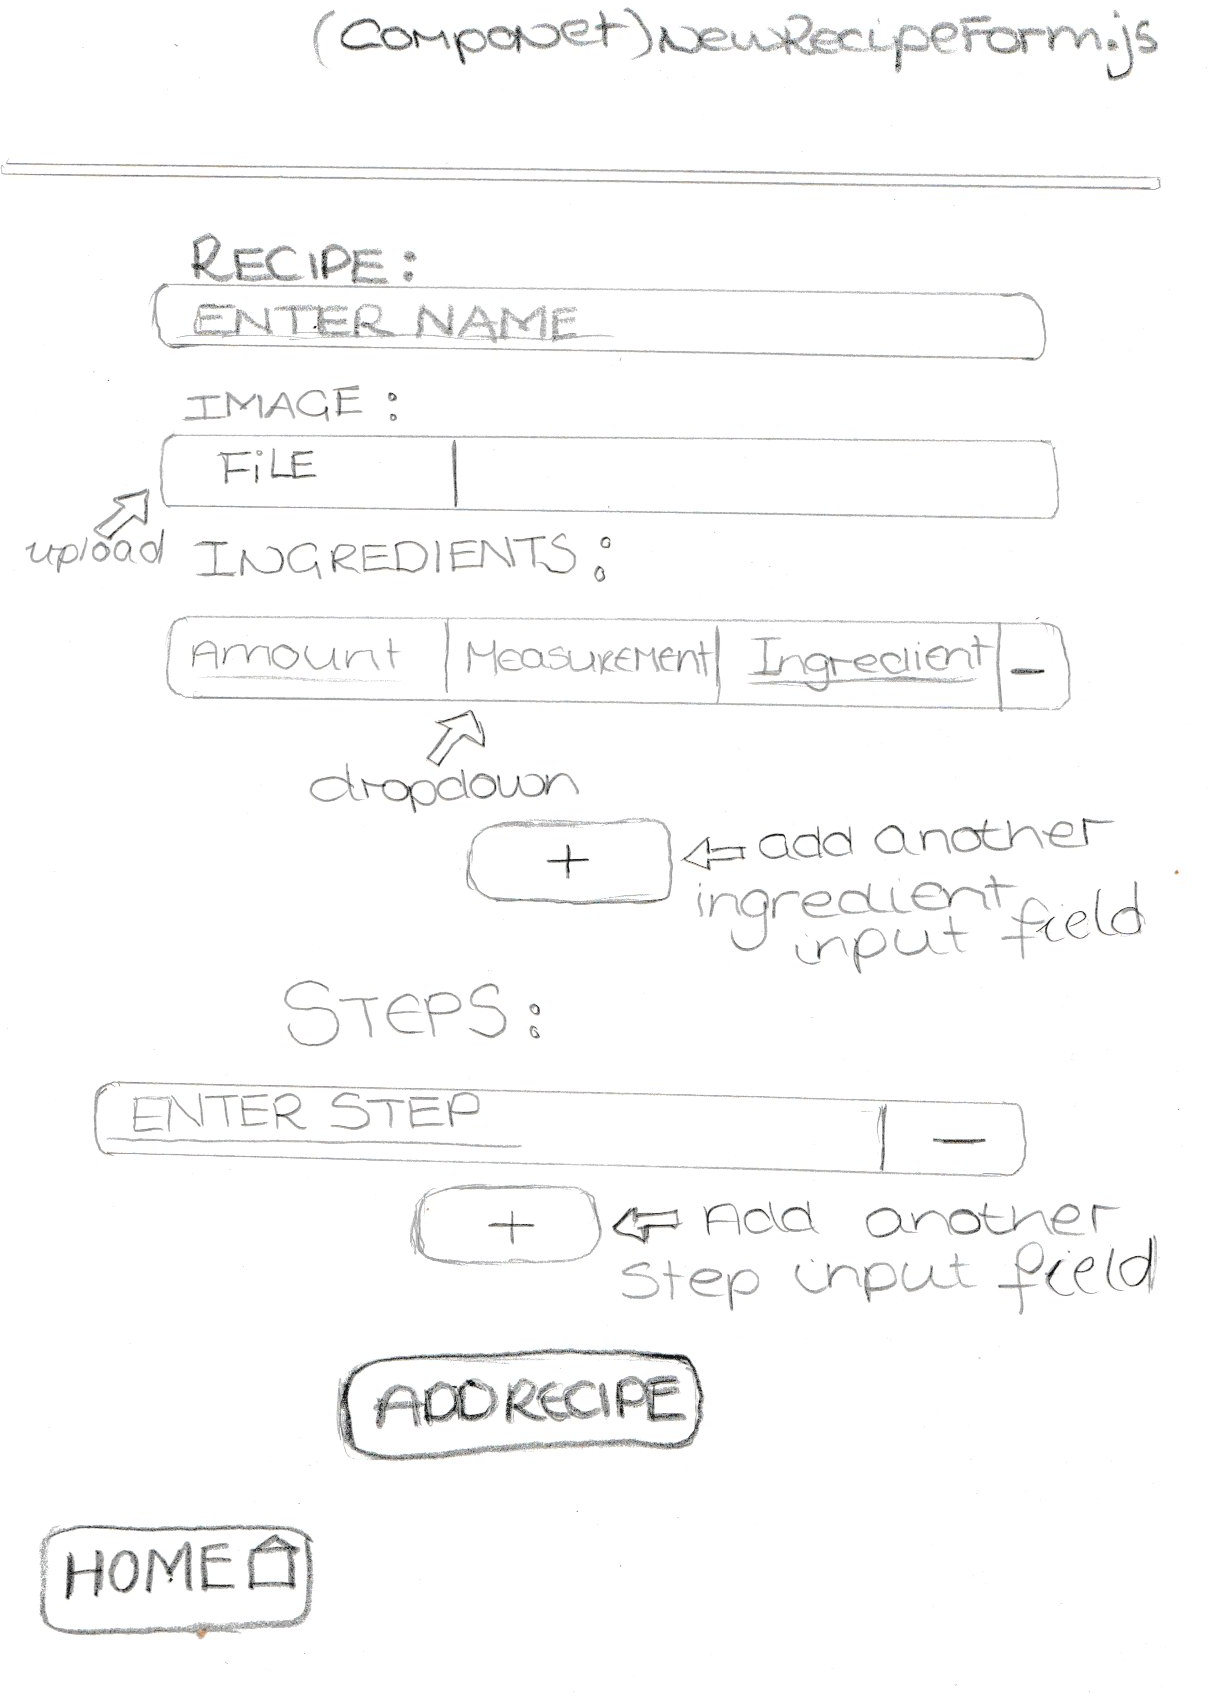 (Componet)NewRecipeForm.js
RECIPE:
ENTER NAME
IMAGE:
FiLE
upload
INGREDIENTS:
Amount Measurement Ingredient -
dropdown
+
add another
ingredient
input field
STEPS:
ENTER STEP -
+
Add another
Step input field
ADD RECIPE
HOME